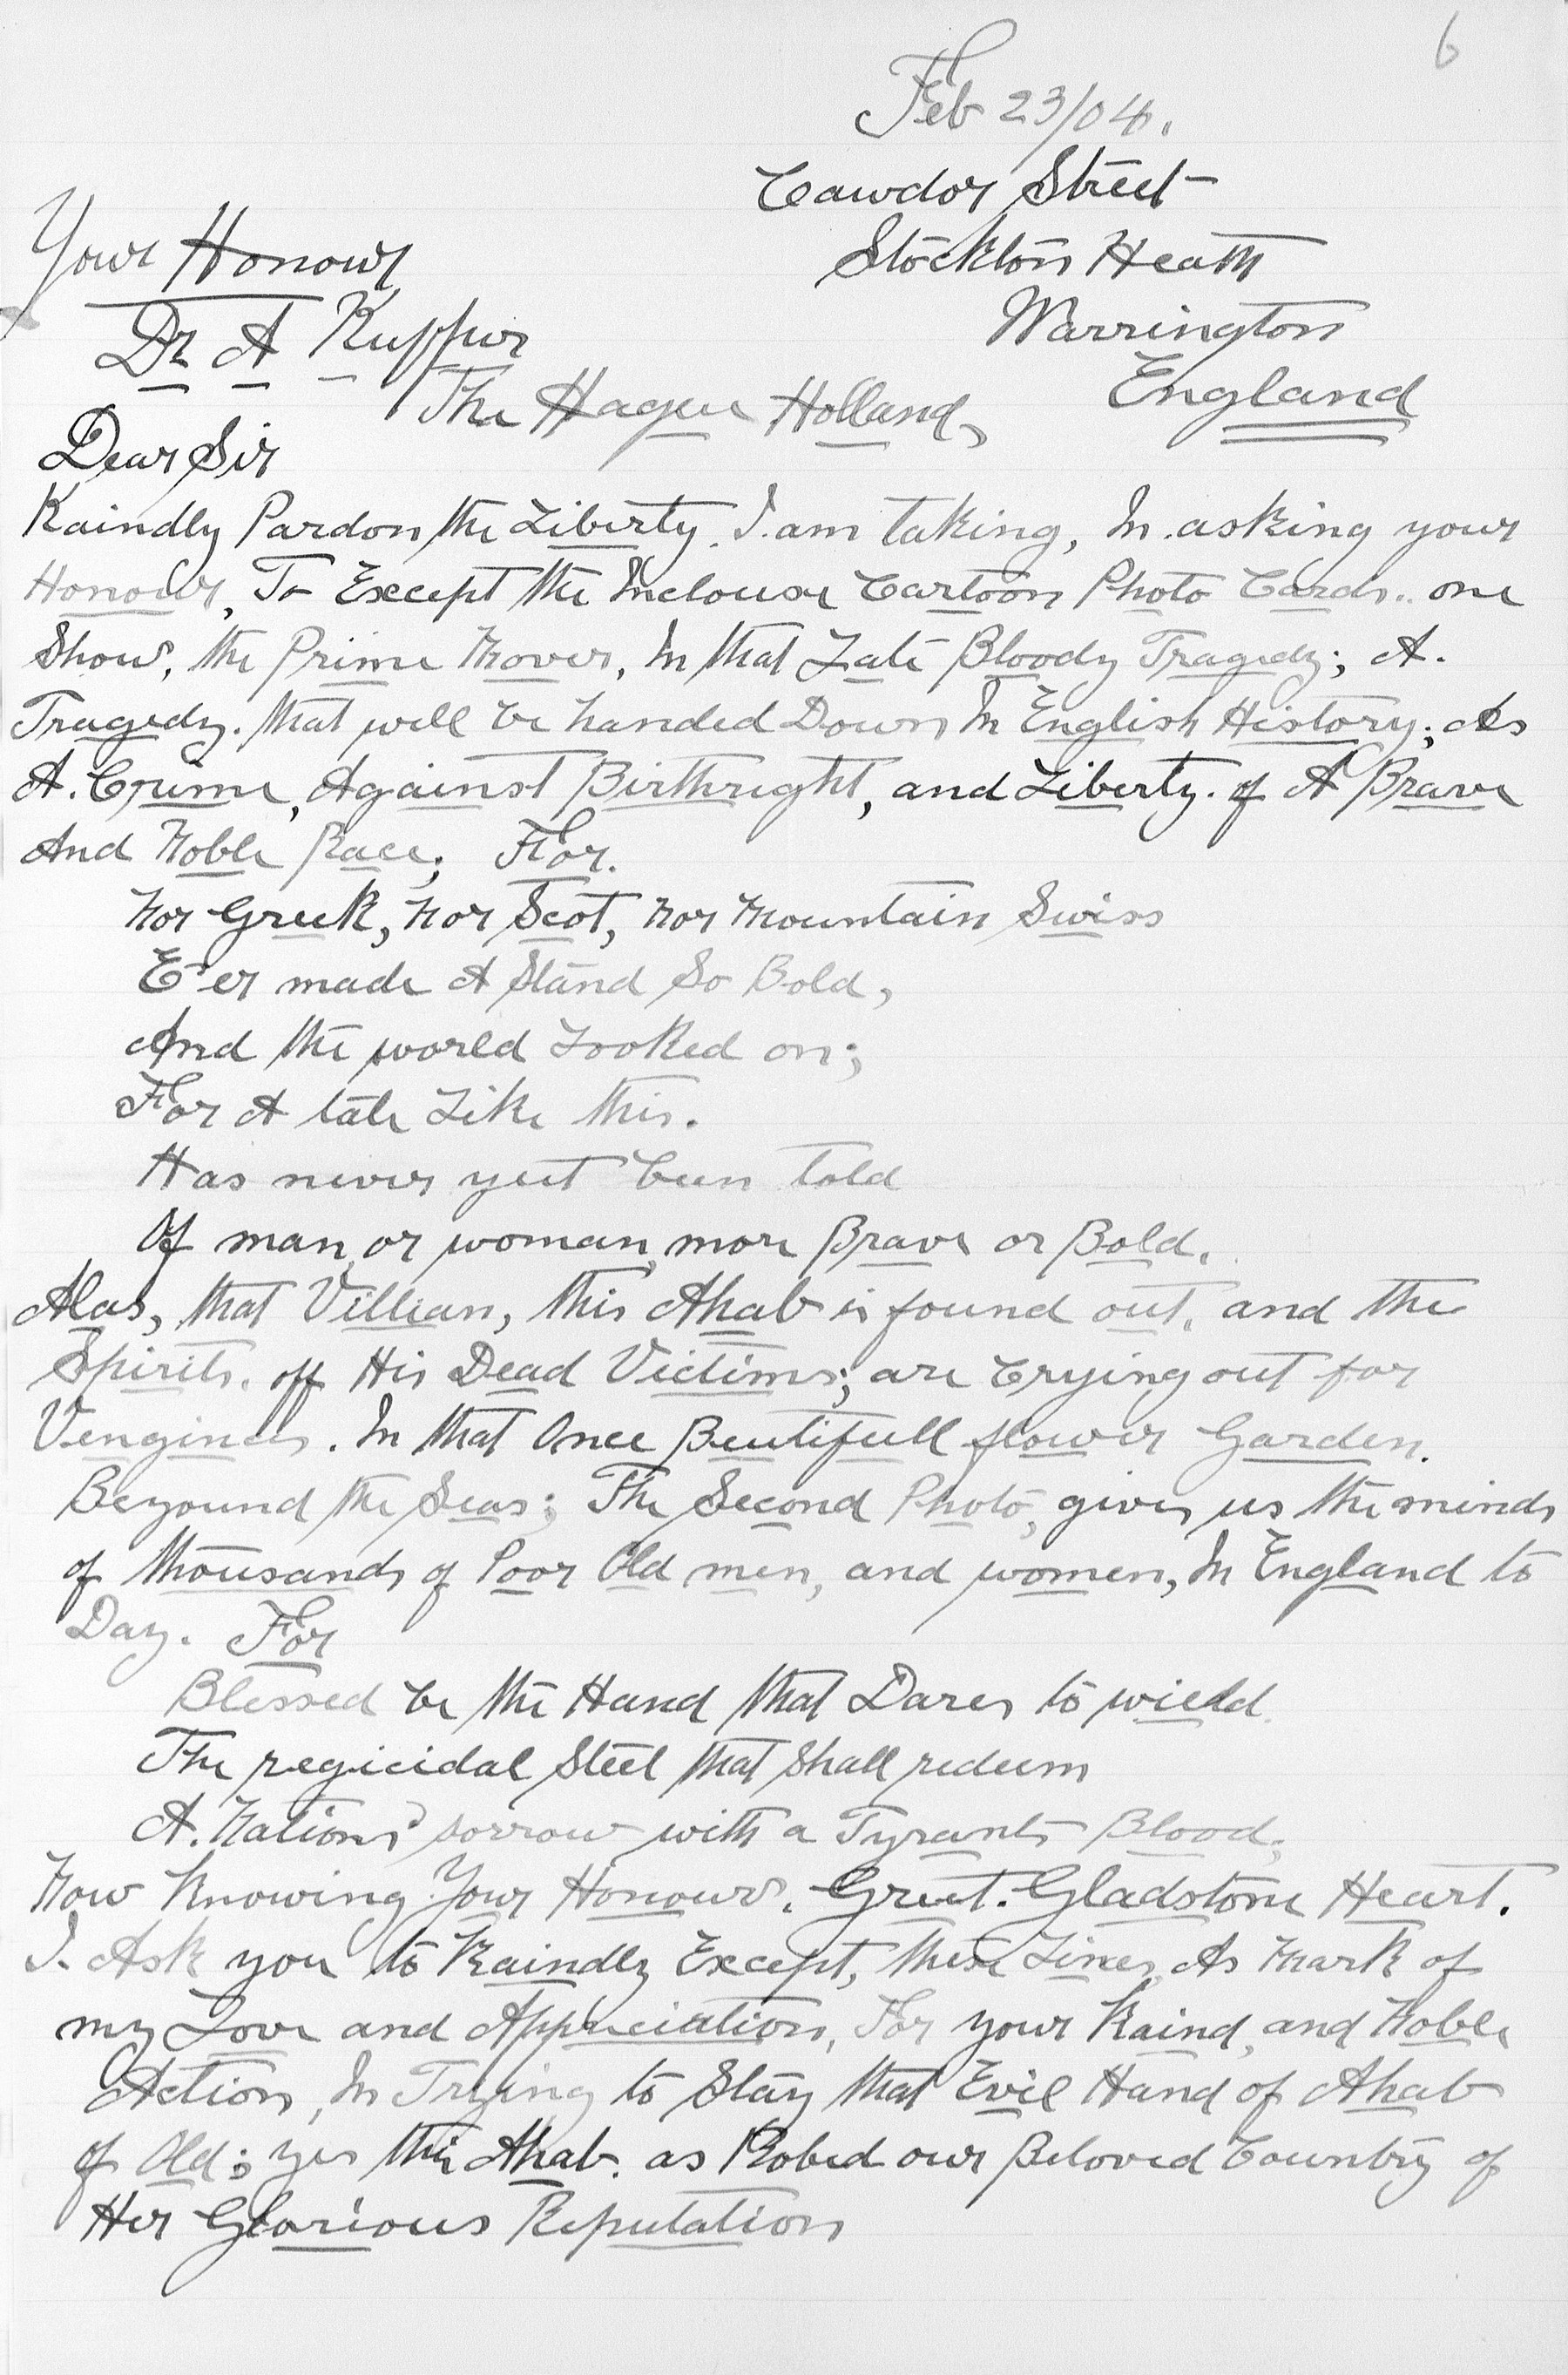 6
Feb 23/04.
Cawdor Street
Stockton Heath
Warrington
England
Your Honour
Dr A Kuyper
The Hague Holland,
Dear Sir
Kaindly Pardon the Liberty. I. am taking, In. asking your
Honour, To Except the Inclouse Cartoon Photo Cards.. one
Show, the Prime Mover, In that Late Bloody Tragedy; A.
Tragedy. that will be handed Down In English History; As
A. Crime, Against Birthright, and Liberty. of A Brave
And Noble Race; For.
Nor Greek, nor Scot, nor Mountain Swiss
E'er made A Stand So Bold,
And the world Looked on;
For A tale Like this.
Has never yeet been told
Of man, or woman, more Brave or Bold.
Alas, that Villian, this Ahab is found out, and the
Spirits. off His Dead Victims; are Crying out for
. In that Once Beutifull flower Garden.
Beyound the Seas; The Second Photo, gives us the minds
of thousands of Poor Old men, and women, In England to
Day. For
Blessed be the Hand that Dares to wield
The regicidal Steel that Shall redeem
A. Nations' sorrow with a Tyrants Blood;
Now Knowing Your Honours. Greet. Gladstone Heart.
I. Ask you to Kaindly Except, these Lines, As Mark of
my Love and Appreciation, For your Kaind, and Noble
Action, In Trying to Stay that Evil Hand of Ahab
of Old; yes this Ahab. as Robed our Beloved Country of
Her Glorious Reputation